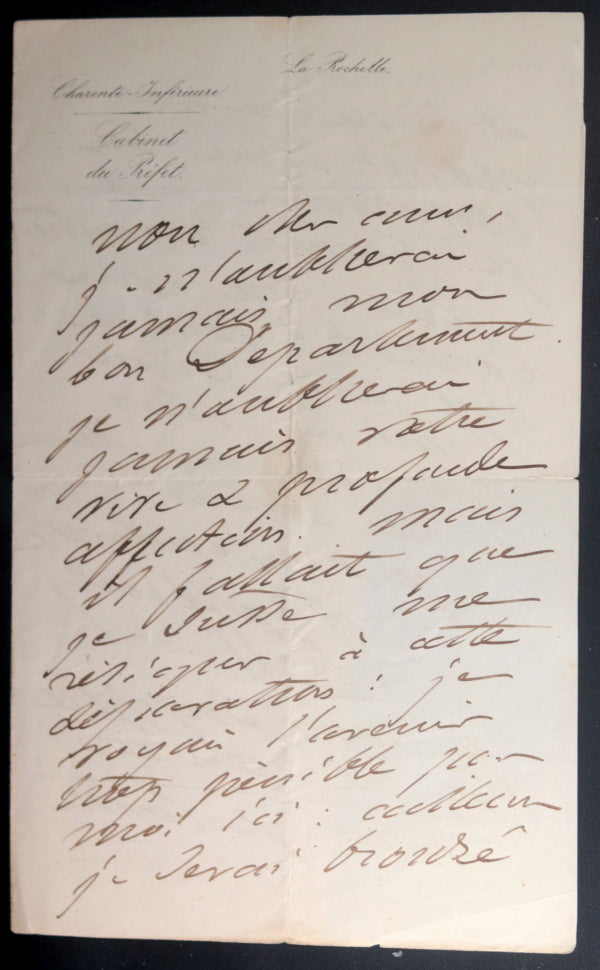 La Rochelle,
Charente-Inférieure
Cabinet
du Préfet.
mon cher ami,
je n'oublierai
jamais mon
bon Département.
je n'oublierai
jamais votre
vive & profonde
affection. mais
il fallait que
je susse me
résigner à cette
séparation : je
voyais l'avenir
trop pénible par
moi ici : ailleurs
je serai bronzé